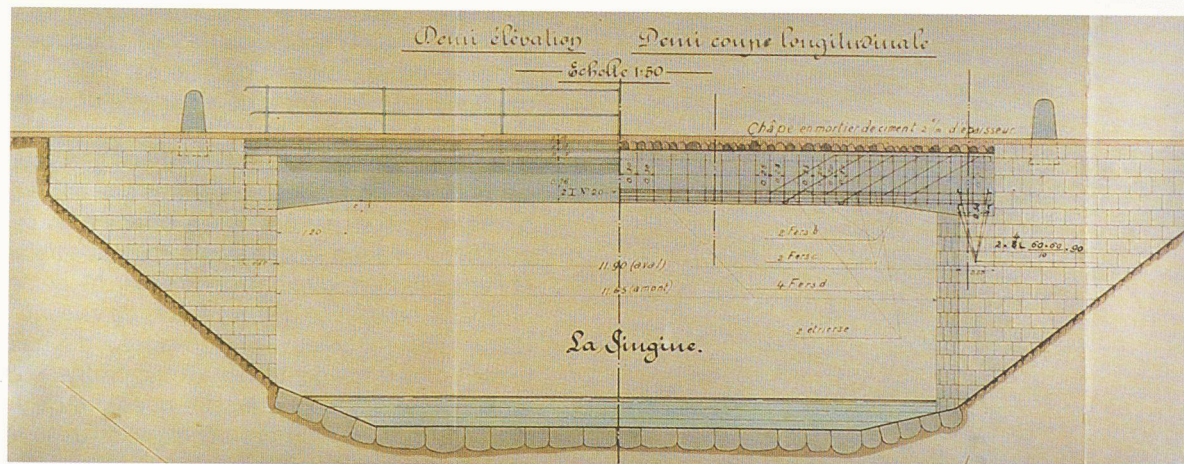 Demi élévation
Demi coupe longitudinale
Echelle 1:50
Châpe en mortier de ciment 2 c/m d'épaisseur
2 I Nº 20
1.20
2 Fers b
2 Fers c
4 Fers d
2 étriers e
11.90 (aval)
11.65 (amont)
60·60
10
90
La Singine.